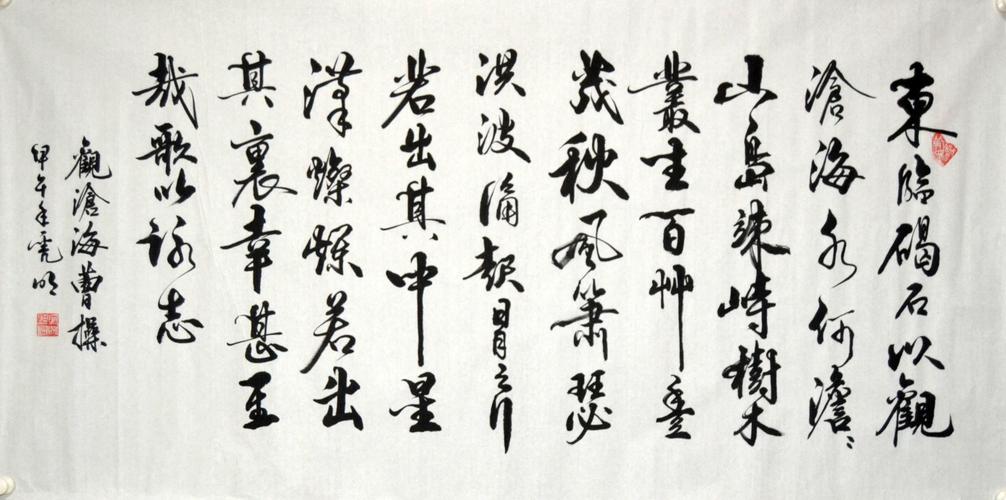 東臨碣石以觀
滄海水何澹〻
山島竦峙樹木
叢生百艸豐
茂秋風蕭瑟
洪波涌起日月之行
若出其中星
漢燦爛若出
其裏幸甚至
哉歌以詠志
觀滄海曹操
甲午年